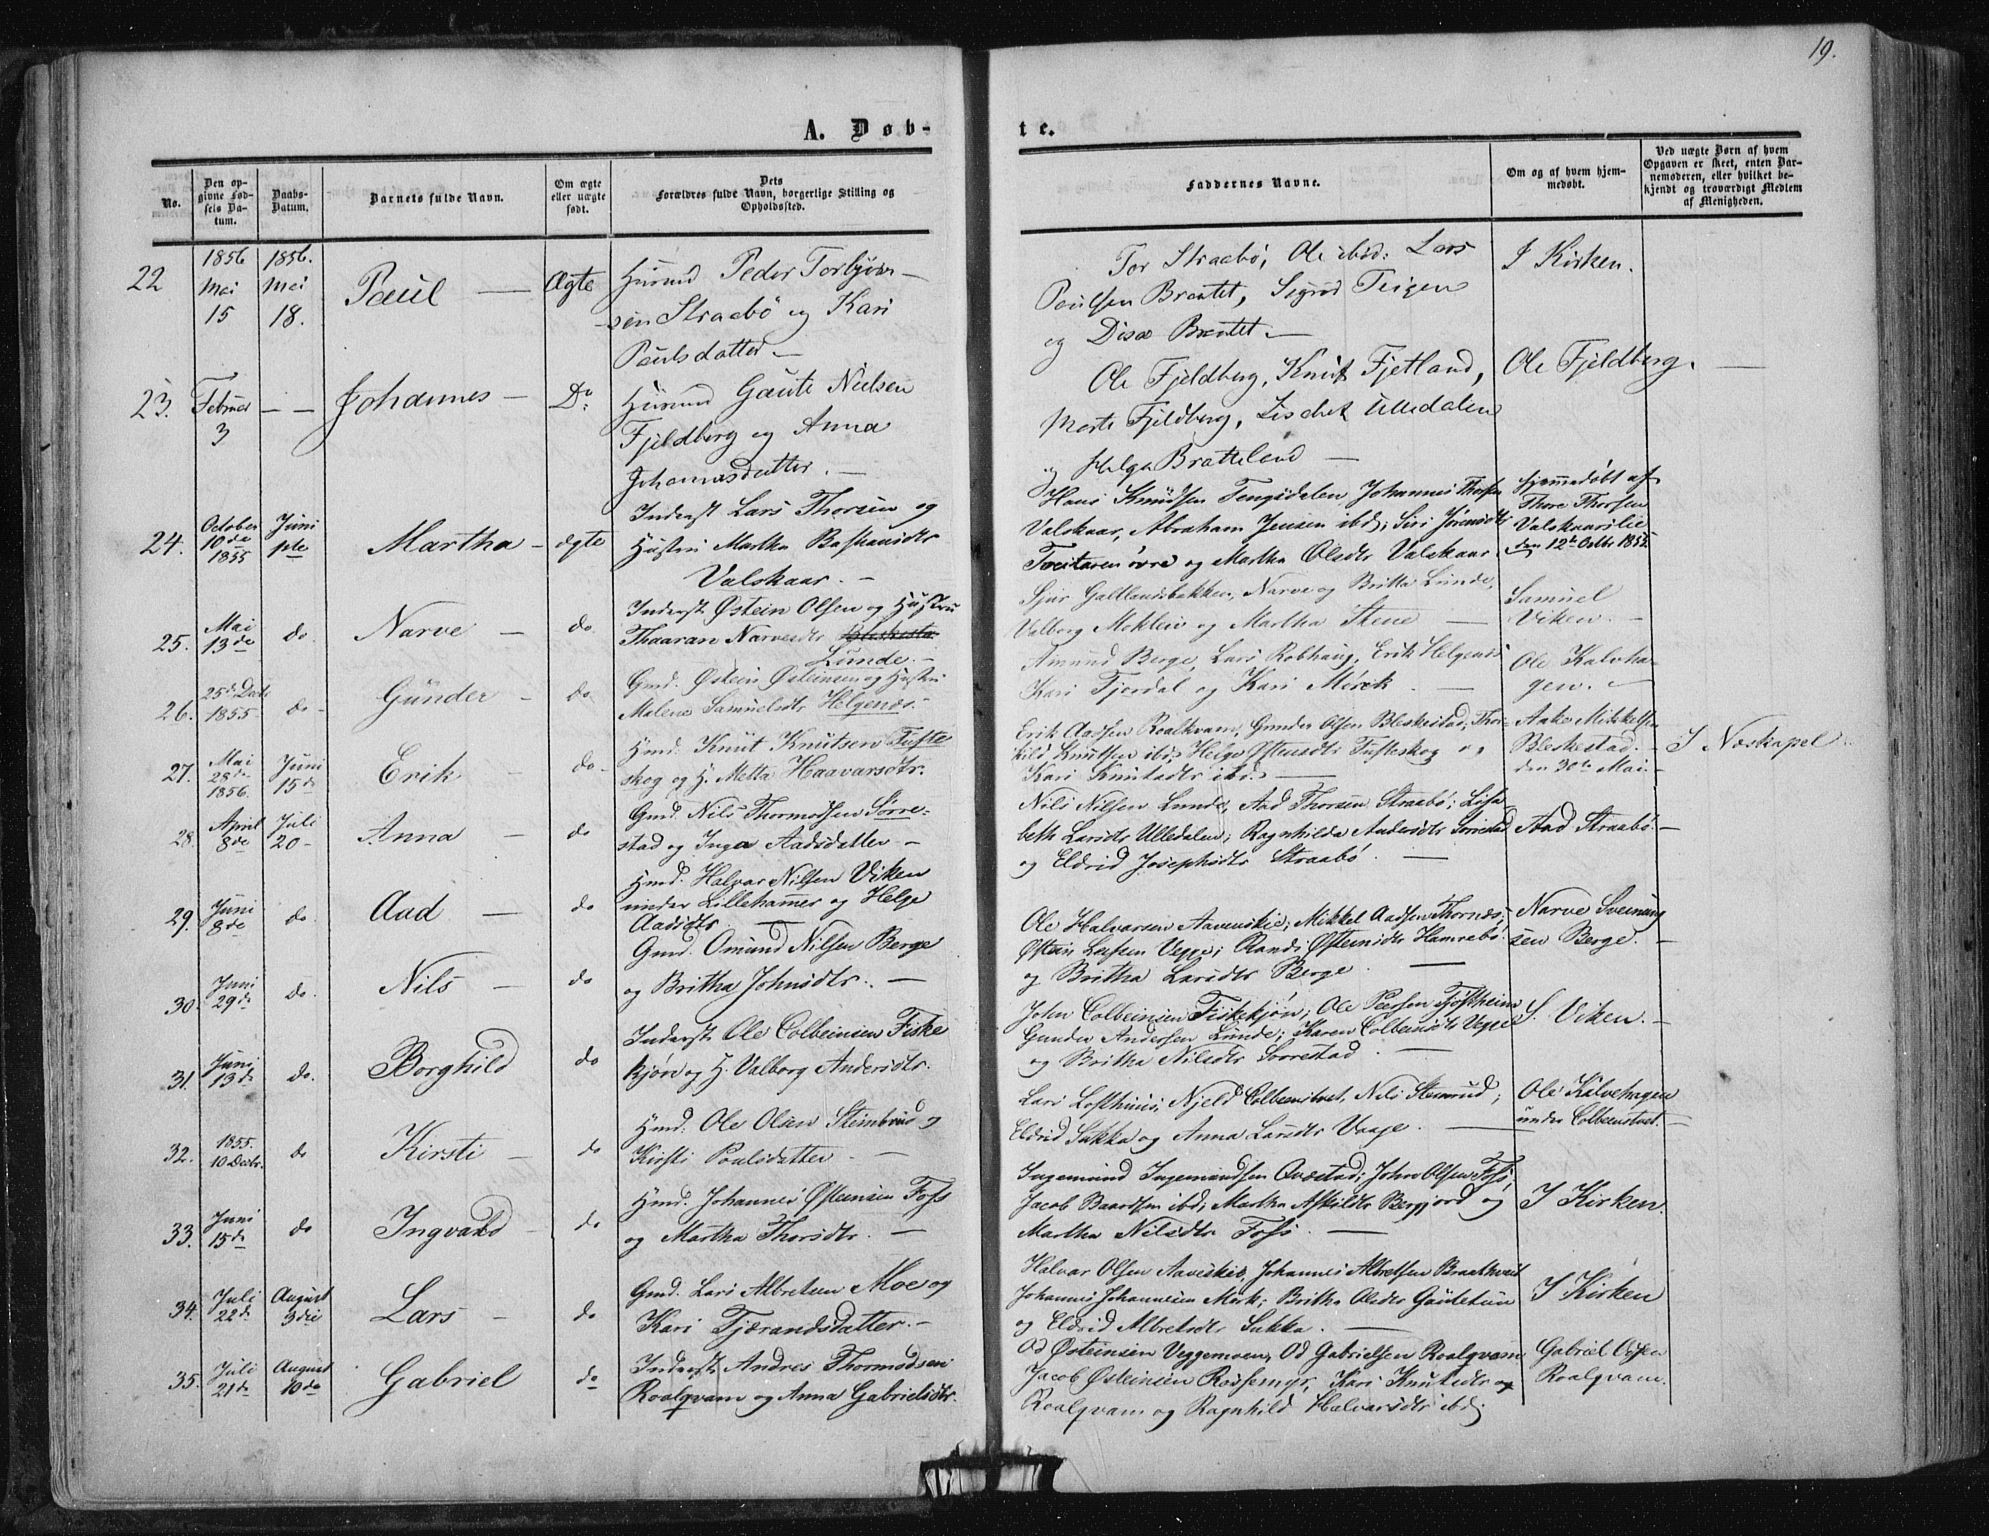 19.
A. Døb-
te.
No.
Den op-
givne Fød-
sels Da-
tum.
Daabs-
Datum.
Barnets fulde Navn.
Om ægte
eller uægte
født.
Dets
Forældres fulde Navn, borgerlige Stilling og
Opholdssted.
Faddernes Navne.
Om og af hvem hjem-
medøbt.
Ved uægte Børn af hvem
Opgaven er skeet, enten Bar-
nemoderen, eller hvilket be-
kjendt og troværdigt Medlem
af Menigheden.
22
1856
Mai
15
1856.
Mei
18.
Paul —
Ægte
Husmd Peder Torbjørn-
sen Straabø og Kari
Paulsdatter —
Tor Straabø, Ole ibid: Lars
Poulsen Brautet, Sigrid Teigen
og Disa Brautet. —
I Kirken.
23.
Februar
3
— —
Johannes —
Do
Husmd Gaute Nielsen
Fjeldberg og Anna
Johannesdatter. —
Ole Fjeldberg, Knut Fjetland,
Marte Fjeldberg, Lisebet Ulledalen
og Helga Bratteland —
Ole Fjeldberg. —
24.
October
10de
1855
Juni
1ste
Martha —
ægte
Inderst Lars Thorsen og
Hustru Martha Bastiansdtr
Valskaar. —
Hans Knudsen Tengsdalen, Johannes Thorsen
Valskaar, Abraham Jensen ibd; Siri Jørensdtr
øvre og Martha Olsdtr Valskaar
Hjemmedøbt af
Thore Thorsen
Valskaarslie
den 12te Octbr 1855.
25.
Mai
13de
do
Narve —
do
Inderst Østein Olsen og Hustru
Thaaran Narvesdtr
Lunde. —
Sjur Galtlandsbakken, Narve og Britta Lunde,
Valborg Moklein og Martha Stene —
Samuel
Viken. —
26.
25de Dcbr
1855
do —
Gunder —
do
Gmd. Østein Østeinsen og Hustru
Malene Samuelsdtr Helgenæs. —
Amund Berge, Lars Robhaug, Erik Helgenæs
Kari Fjerdal og Kari Mørck. —
Ole Kalvha-
gen. —
27.
Mai
28de
1856.
Juni
15de
Erik —
do —
Hmd. Knut Knutsen Tufte
skog og H. Metta Haavarsdtr.
Erik Aadsen Roalkvam, Gunder Olsen Bleskestad; Thor-
kild Knutsen ibd; Helga Østensdtr Tufteskog og
Kari Knutsdtr ibd. —
Aake Mikkelsen
Bleskestad. —
den 30te Mai. —
I Næskapel.
28.
April
8de
Juli
20 —
Anna —
do
Gmd. Nils Thormodsen Sørre-
stad og Inga Aadsdatter —
Nils Nilsen Lunde, Aad Thorsen Straabø; Lisa
beth Larsdtr Ulledalen; Ragnhilda Andersdtr Sørrestad
og Eldrid Josephsdtr Straabø. —
Aad Straabø. —
29.
Juni
8de
do.
Aad —
do
Hmd. Halvar Nilsen Viken
under Lillehamer og Helge
Aadsdtr —
Ole Halvarsen Aarenskie; Mikkel Aadsen Thornæs;
Østein Leifsen Vegge; Randi Østeinsdtr Hamrabø
og Britha Larsdtr Berge. —
Narve Sveinung
sen Berge. —
30.
Juni
29de
do.
Nils —
do
Gmd. Omund Nilsen Berge
og Britha Johnsdtr. —
John Colbeinsen Fiskekjøn; Ole Peersen Tjøstheim
Gunder Andersen Lunde; Karen Colbeinsdtr Vegge
og Britha Nilsdtr Sørrestad. —
S. Viken. —
31.
Juni
13de
do.
Borghild
do
Inderst Ole Colbeinsen Fiske
kjøn og H. Valborg Andersdtr.
Lars Lofthuus; Njeld Colbeinstvet, Nils Stemrud;
Eldrid Sukka og Anna Larsdtr Vaage. —
Ole Kalvehagen
under Colbeinstvet. —
32.
1855.
10 Decbr.
do
Kirsti —
do
Hmd. Ole Olsen Steinbrud og
Kirsti Poulsdatter —
Ingemund Ingemundsen Qvæstad; John Olsen Foss;
Jacob Baardsen ibd; Martha Askildtr Bergjord og
Martha Nilsdtr Foss. —
I Kirken.
33.
Juni
15de
do
Ingvald —
do
Hmd. Johannes Østeinsen Foss
og Martha Thorsdtr. —
Halvar Olsen Aareskie, Johannes Albretsen Braathveit
Johannes Johannesen Mork; Britha Olsdtr Gautetun
og Eldrid Albretsdtr Sukka. —
I Kirken
34.
Juli
22de
August
3die
Lars —
do
Gmd. Lars Albretsen Moe og
Kari Tjærandsdatter. —
Od Østeinsen Veggemoen, Od Gabrielsen Roalqvam
Jacob Østeinsen Røssemyr, Kari Knutsdtr og
Roalqvam og Ragnhild Halvarsdtr ibd;
Gabriel Odsen
Roalqvam.
35.
Juli
21de
August
10de
Gabriel
do
Inderst Andres Thormodsen
Roalqvam og Anna Gabrielsdtr.